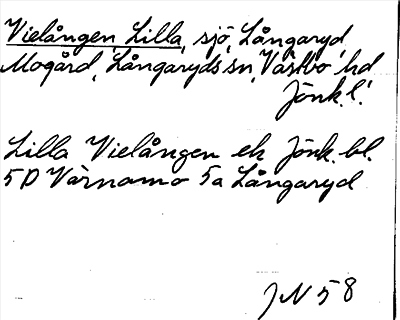 Vielången, Lilla, sjö, Långaryd,
Mogård, Långaryds sn, Västbo hd
Jönk. l.
Lilla Vielången ek Jönk. bl.
5D Värnamo 5a Långaryd
JN 58